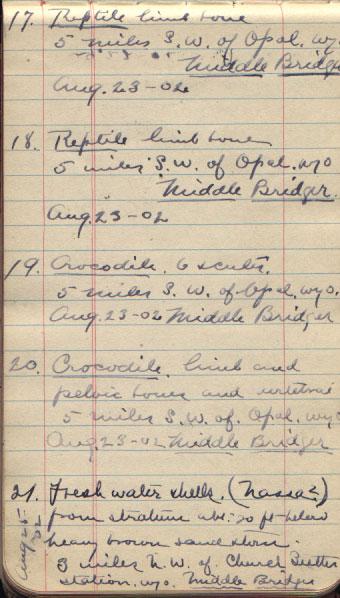 17. Reptile limb bone
5 miles S.W. of Opal. Wyo
Middle Bridger
Aug. 23-02
18. Reptile limb bone
5 miles S.W. of Opal. Wyo
Middle Bridger.
Aug. 23-02
19. Crocodile. 6 scutes.
5 miles S.W. of Opal. Wyo.
Aug. 23-02 Middle Bridger
20. Crocodile. limb and
pelvic bones and
5 miles S.W. of. Opal. Wyo
Aug 23-02 Middle Bridger
21. Fresh water shells. (
from stratum abt. 20 ft below
heavy brown sand stone.
3 miles N.W. of Church Buttes
station. Wyo. Middle Bridger
Aug 25-02